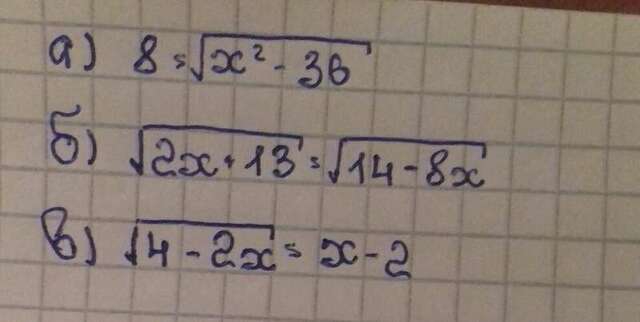 а) 8 = √(x² - 36)
б) √(2x + 13) = √(14 - 8x)
в) √(4 - 2x) = x - 2